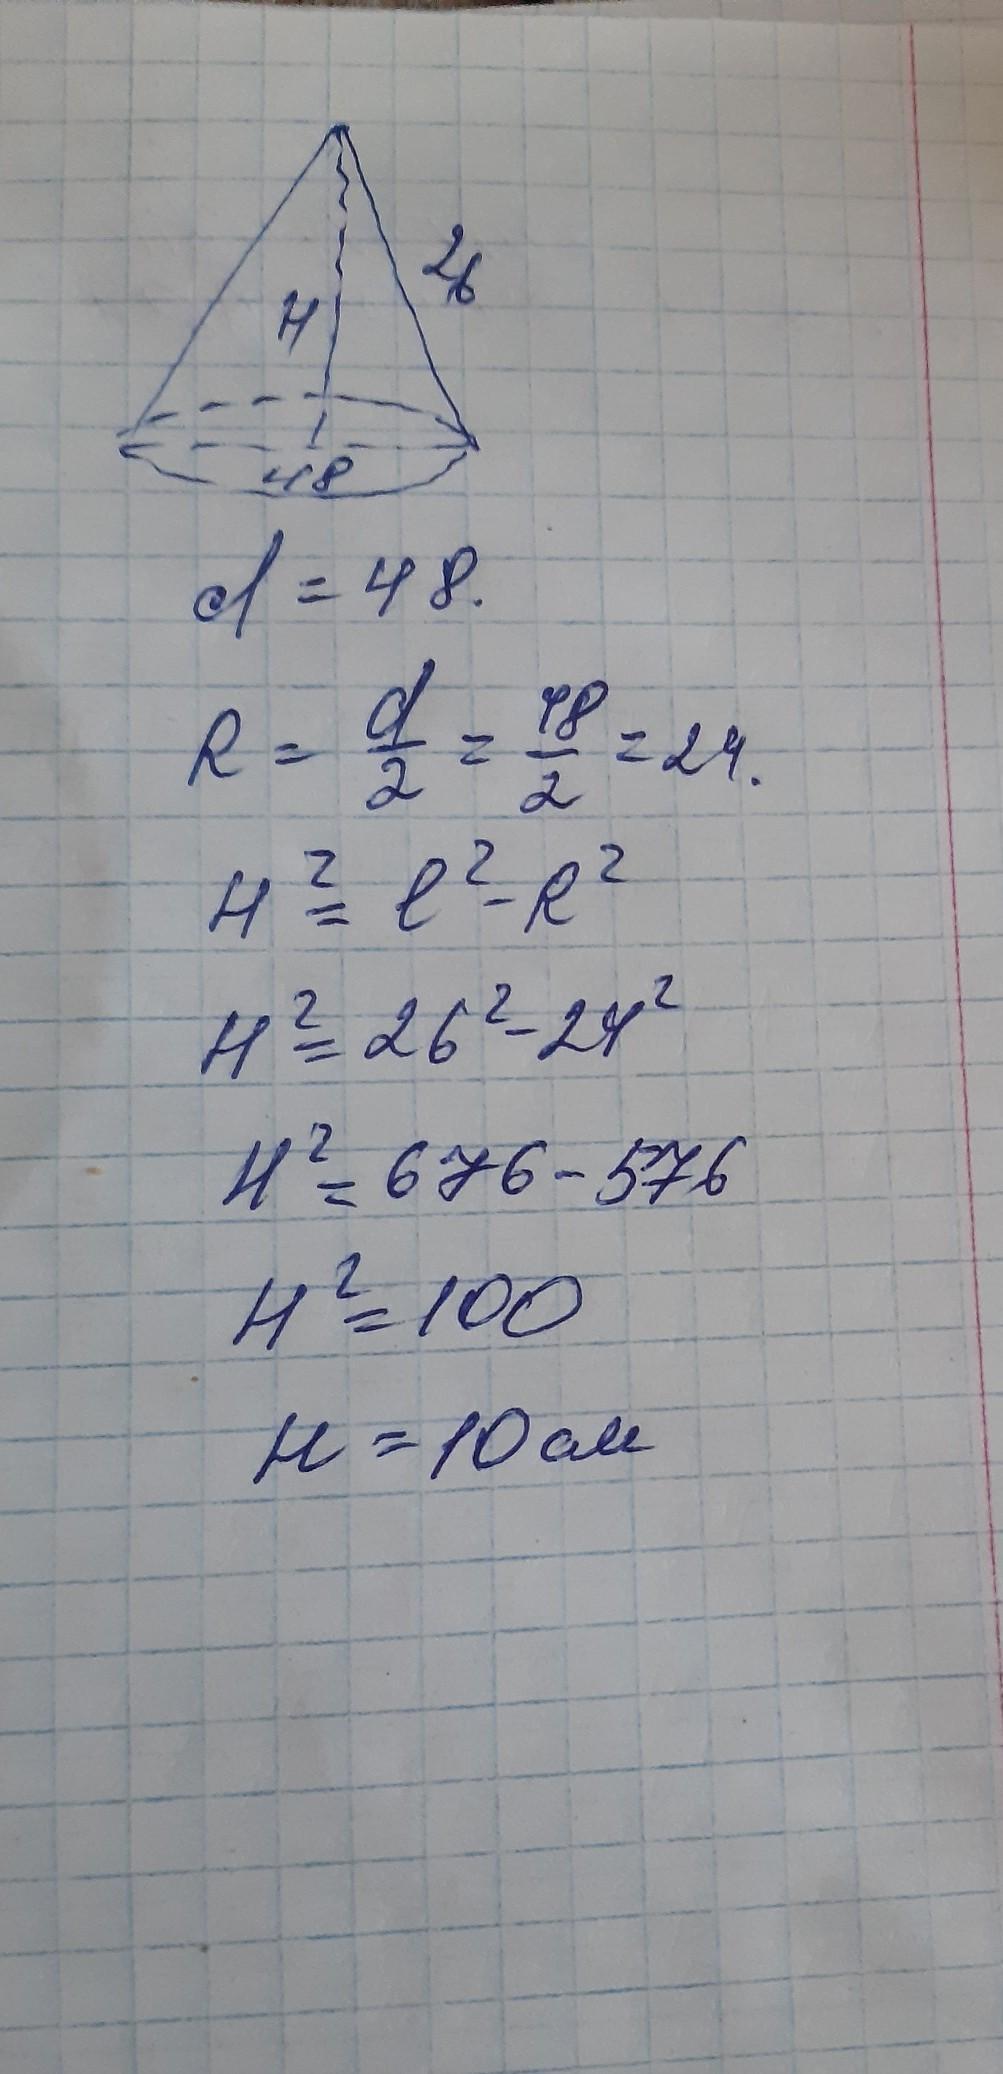 H
26
48
d = 48.
R = d/2 = 48/2 = 24.
H² = l² - R²
H² = 26² - 24²
H² = 676 - 576
H² = 100
H = 10 см